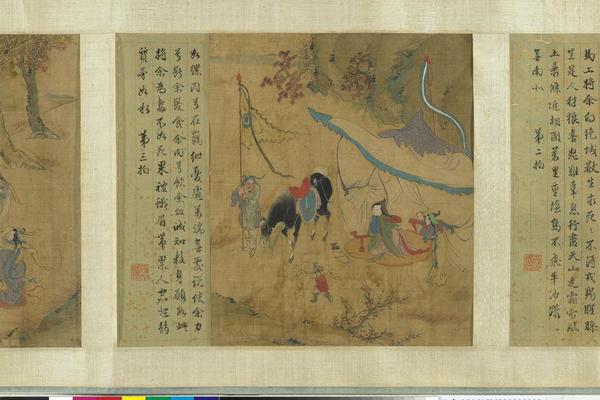 馬上將余向絕域厭生求死〻不得戎羯腥羶
豈是人豺狼喜怒難辜息行盡天山足霜雪風
土蕭條近胡國萬里重陰鳥不飛平沙漭〻
無南北 第二拍
如縲囚兮在羈紲憂慮萬端無處說使余力
兮斷余髮食余肉兮飲余血誠知殺身願如此
將余為妻不如死果被蛾眉帶累人空悲弱
質柔如水 第三拍